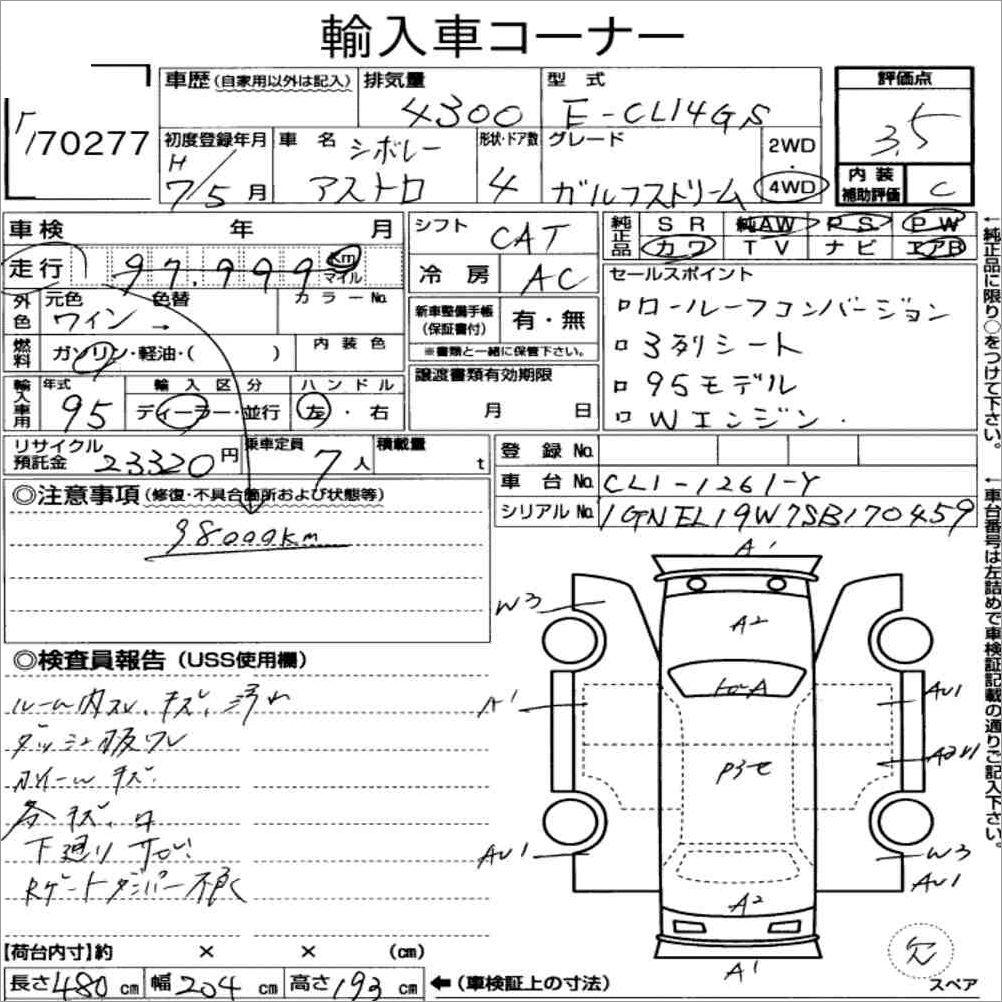 輸入車コーナー
車歴(自家用以外は記入) 排気量 4300 型式 E-CL14GS 評価点 3.5
170277
初度登録年月 H7/5月 車名 シボレー アストロ 形状・ドア数 4 グレード ガルフストリーム 2WD・4WD 内装補助評価 C
車検 年 月 シフト CAT 純正品 SR 純AW PS PW
カワ TV ナビ エアB
走行 97,999 Km マイル 冷房 AC セールスポイント
外色 元色 ワイン 色替 → カラーNo. 新車整備手帳(保証書付) 有・無 ロールーフコンバージョン
※書類と一緒に保管下さい。 3列シート
燃料 ガソリン・軽油・( ) 内装色 譲渡書類有効期限 95モデル
輸入車用 年式 95 輸入区分 ディーラー・並行 ハンドル 左・右 月 日 Wエンジン.
リサイクル預託金 23320円 乗車定員 7人 積載量 t 登録No.
◎注意事項(修復・不具合箇所および状態等) 車台No. CL1-1261-Y
シリアルNo. 1GNEL19W7SB170459
98000km
A1
W3
A2
◎検査員報告(USS使用欄)
ルーム内スレ、キズ、汚れ
A1 トビA AU1
ダッシュ版ワレ
ホイールキズ
P3セ
各キズ、凹
下廻りサビ
AU1 W3
Rゲートダンパー不良
AU1
A2
【荷台内寸】約 × × (cm) 欠
長さ480cm 幅204cm 高さ193cm ←(車検証上の寸法) A1 スペア
←純正品に限り○をつけて下さい。
←車台番号は左詰めで車検証記載の通りご記入下さい。